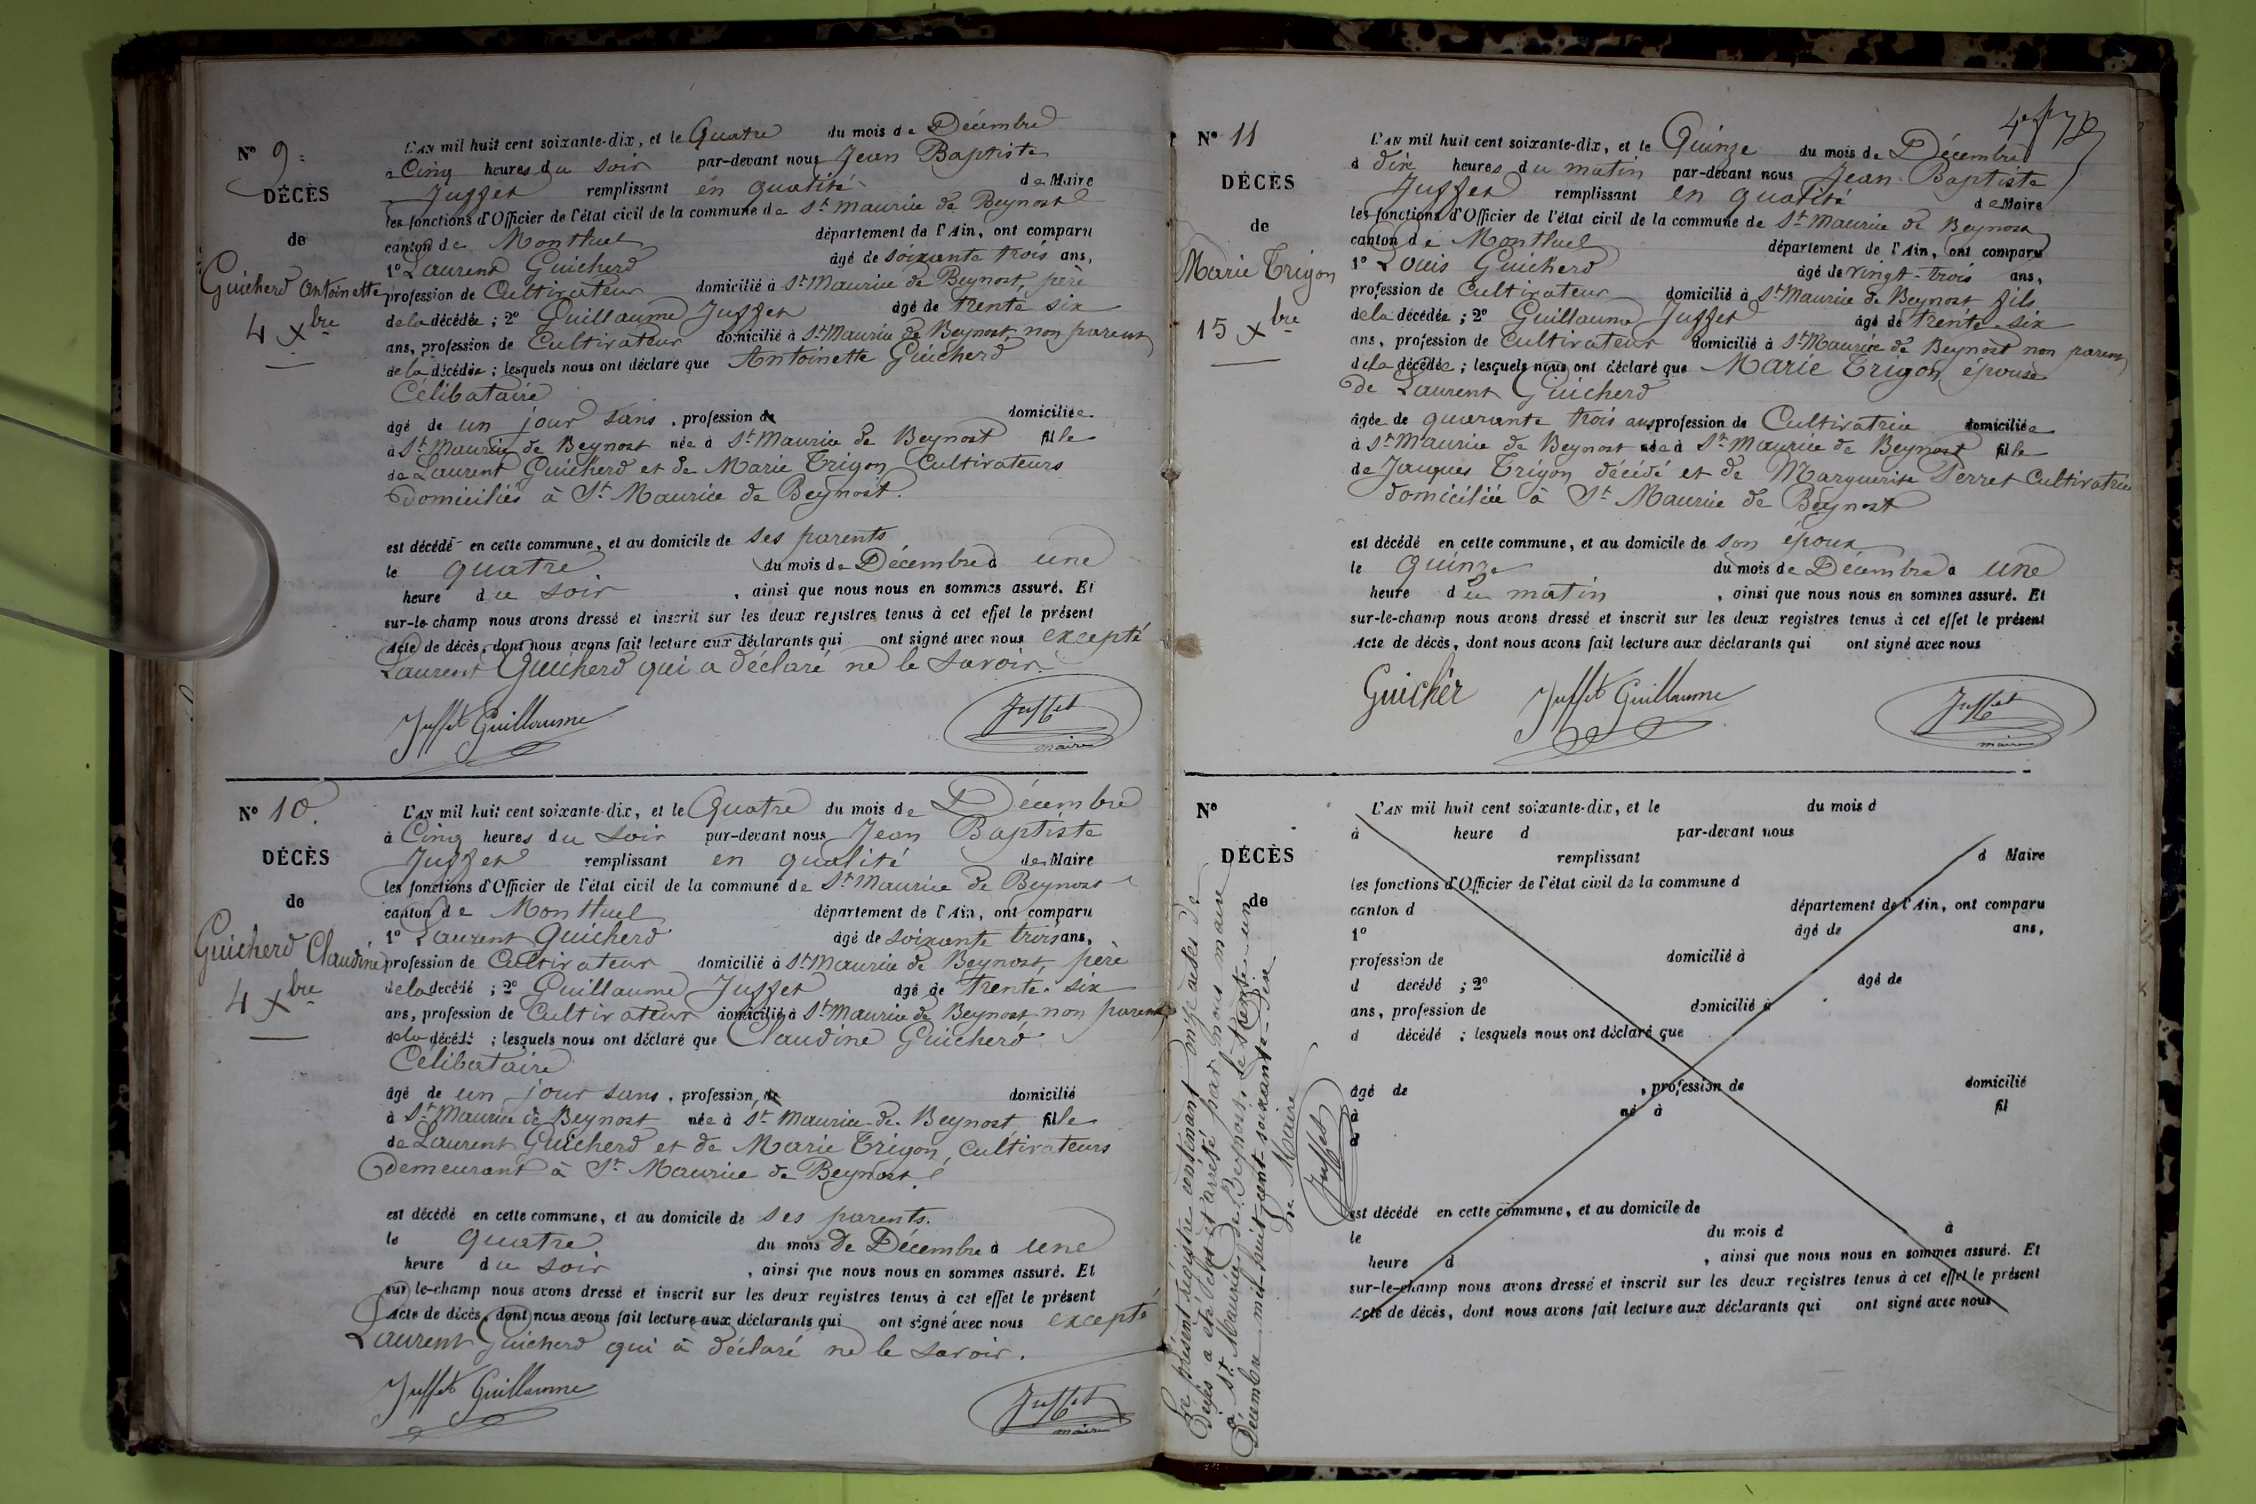 N° 9.
DÉCÈS
de
Guicherd Antoinette
4 Xbre
L'AN mil huit cent soixante-dix, et le Quatre du mois de Décembre
à Cinq heures du soir par-devant nous Jean Baptiste
Juffet remplissant en qualité de Maire
les fonctions d'Officier de l'état civil de la commune de St Maurice de Beynost
canton de Montluel département de l'Ain, ont comparu
1° Laurent Guicherd âgé de soixante trois ans,
profession de Cultivateur domicilié à St Maurice de Beynost, père
de la décédée ; 2° Guillaume Juffet âgé de trente six
ans, profession de Cultivateur domicilié à St Maurice de Beynost, non parent
de la décédée ; lesquels nous ont déclaré que Antoinette Guicherd
Célibataire
âgé de un jour sans , profession de domiciliée
à St Maurice de Beynost née à St Maurice de Beynost fille
de Laurent Guicherd et de Marie Trigon Cultivateurs
domiciliés à St Maurice de Beynost.
est décédé en cette commune, et au domicile de ses parents
le quatre du mois de Décembre à une
heure du soir , ainsi que nous nous en sommes assuré. Et
sur-le-champ nous avons dressé et inscrit sur les deux registres tenus à cet effet le présent
Acte de décès, dont nous avons fait lecture aux déclarants qui ont signé avec nous excepté
Laurent Guicherd qui a déclaré ne le savoir.
Juffet Guillaume Juffet
maire
N° 10.
DÉCÈS
de
Guicherd Claudine
4 Xbre
L'AN mil huit cent soixante-dix, et le Quatre du mois de Décembre
à Cinq heures du soir par-devant nous Jean Baptiste
Juffet remplissant en qualité de Maire
les fonctions d'Officier de l'état civil de la commune de St Maurice de Beynost
canton de Montluel département de l'Ain, ont comparu
1° Laurent Guicherd âgé de soixante trois ans,
profession de Cultivateur domicilié à St Maurice de Beynost, père
de la décédé ; 2° Guillaume Juffet âgé de trente six
ans, profession de Cultivateur domicilié à St Maurice de Beynost non parent
de la décédé ; lesquels nous ont déclaré que Claudine Guicherd
Célibataire
âgé de un jour sans , profession de domicilié
à St Maurice de Beynost née à St Maurice de Beynost fille
de Laurent Guicherd et de Marie Trigon, Cultivateurs
demeurant à St Maurice de Beynost.
est décédé en cette commune, et au domicile de ses parents.
le quatre du mois de Décembre à une
heure du soir , ainsi que nous nous en sommes assuré. Et
sur le-champ nous avons dressé et inscrit sur les deux registres tenus à cet effet le présent
Acte de décès, dont nous avons fait lecture aux déclarants qui ont signé avec nous excepté
Laurent Guicherd qui a déclaré ne le savoir.
Juffet Guillaume Juffet
maire
N° 11
DÉCÈS
de
Marie Trigon
15 Xbre
L'AN mil huit cent soixante-dix, et le Quinze du mois de Décembre
à dix heures du matin par-devant nous Jean Baptiste
Juffet remplissant en qualité de Maire
les fonctions d'Officier de l'état civil de la commune de St Maurice de Beynost
canton de Montluel département de l'Ain, ont comparu
1° Louis Guicherd âgé de vingt-trois ans,
profession de Cultivateur domicilié à St Maurice de Beynost fils
de la décédée ; 2° Guillaume Juffet âgé de trente-six
ans, profession de Cultivateur domicilié à St Maurice de Beynost non parent
de la décédée ; lesquels nous ont déclaré que Marie Trigon, épouse
de Laurent Guicherd
âgée de quarante trois ans profession de Cultivatrice domiciliée
à St Maurice de Beynost née à St Maurice de Beynost fille
de Jacques Trigon décédé et de Marguerite Perret Cultivatrice
domiciliée à St Maurice de Beynost
est décédé en cette commune, et au domicile de son époux
le Quinze du mois de Décembre à une
heure du matin , ainsi que nous nous en sommes assuré. Et
sur-le-champ nous avons dressé et inscrit sur les deux registres tenus à cet effet le présent
Acte de décès, dont nous avons fait lecture aux déclarants qui ont signé avec nous
Guicher Juffet Guillaume Juffet
maire
N°
DÉCÈS
de
L'AN mil huit cent soixante-dix, et le du mois d
à heure d par-devant nous
remplissant d Maire
les fonctions d'Officier de l'état civil de la commune d
canton d département de l'Ain, ont comparu
1° âgé de ans,
profession de domicilié à
d décédé ; 2° âgé de
ans, profession de domicilié à
d décédé ; lesquels nous ont déclaré que
âgé de , profession de domicilié
à né à fil
d
est décédé en cette commune, et au domicile de
le du mois d à
heure d , ainsi que nous nous en sommes assuré. Et
sur-le-champ nous avons dressé et inscrit sur les deux registres tenus à cet effet le présent
Acte de décès, dont nous avons fait lecture aux déclarants qui ont signé avec nous
Le présent registre contenant onze actes de
Décès a été clos et arrêté par nous maire
à St Maurice de Beynost, le trente-un
Décembre mil-huit-cent-soixante-dix
Le Maire
Juffet